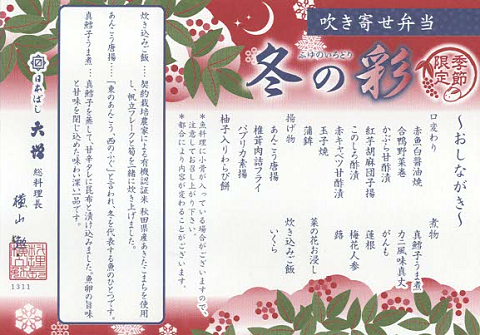 吹き寄せ弁当
ふゆのいろどり
冬の彩
季節限定
～おしながき～
口変わり
赤魚白醤油焼
合鴨野菜巻
かぶら甘酢漬
紅芋胡麻団子揚
このしろ酢漬
赤キャベツ甘酢漬
玉子焼
蒲鉾
揚げ物
あんこう唐揚
椎茸肉詰フライ
パプリカ素揚
柚子入りわらび餅
煮物
真鱈子うま煮
カニ風味真丈
がんも
蓮根
梅花人参
蕗
菜の花お浸し
いくら
炊き込みご飯
＊魚料理に小骨が入っている場合がございますので、
注意してお召し上がり下さい。
＊都合により内容が変わることがございます。
炊き込みご飯…契約栽培農家による有機認証米 秋田県産あきたこまちを使用
し、帆立フレークと筍を一緒に炊き上げました。
あんこう唐揚…「東のあんこう、西のふぐ」と言われ、冬を代表する魚のひとつです。
真鱈子うま煮…真鱈子を蒸して、甘辛タレに昆布と漬け込みました。魚卵の旨味
と甘味を閉じ込めた味わい深い一品です。
日本ばし
大増
総料理長
横山
1311